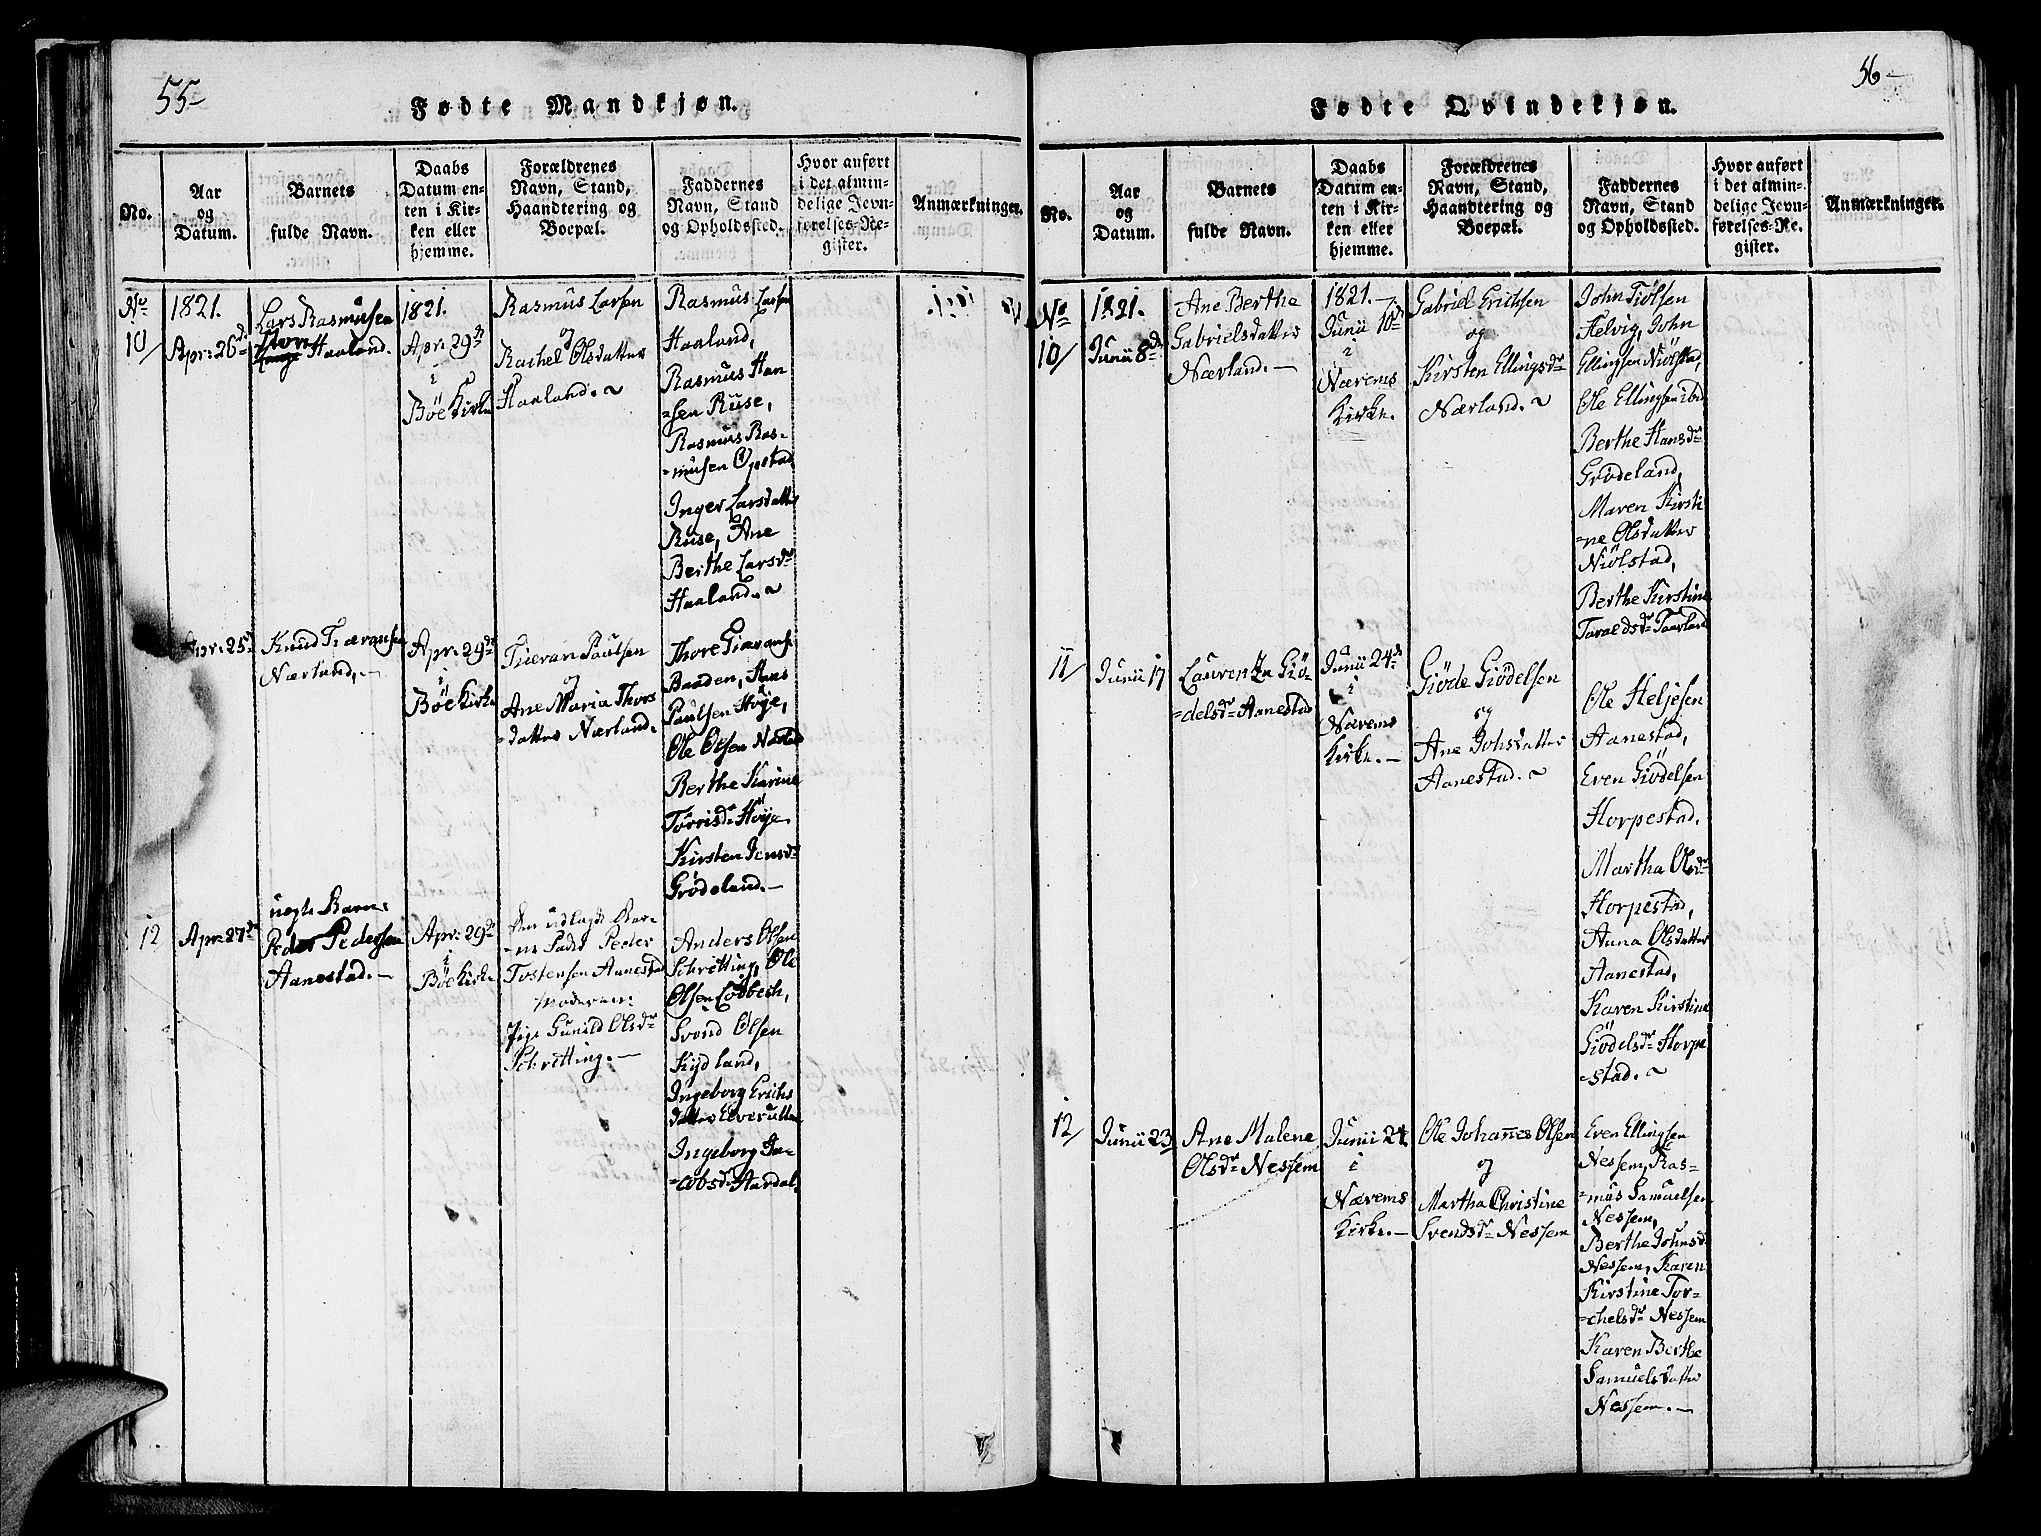 55-
Fødte Mandkjøn.
No.
Aar
og
Datum.
Barnets
fulde Navn.
Daabs
Datum en-
ten i Kir-
ken eller
hjemme.
Forældrenes
Navn, Stand,
Haandtering og
Boepæl.
Faddernes
Navn, Stand
og Opholdssted.
Hvor anført
i det almin-
delige Jevn-
førelses-Re-
gister.
Anmærkninger.
No
10/
1821.
Apr: 26d
Lars Rasmusen
Haaland.
1821.
Apr: 29de
i
Böe Kirke
Rasmus Larsen
og
Rachel Olsdatter
Haaland. ~
Rasmus Larsen
Haaland,
Rasmus Han
=sen Ruse,
Rasmus Ras-
=musen Opstad
Inger Larsdatter
Ruse, Ane
Berthe Larsdr
Haaland. ~
Apr: 25d
Knud Tiæransen
Nærland, -
Apr: 29de
i
Böe Kirke
Tiæran Paulsen
og
Ane Maria Thors
=datter Nærland.
Thore Tiæransen
Banden, Hans
Paulsen Höÿe,
Ole Olsen Nærland
Berthe Karine
Torrisdr Höÿe.
Kirsten Jensdr
Grödeland. -
12
Apr: 27de
uægte Barn:
Peder Pedersen
Aanestad. -
Apr: 29de
i
Böe Kirke
Den udlagde Bar-
=ne Fader Peder
Tostensen Aanestad
Moderen:
Pige Gunild Olsdr
Schretting. -
Anders Olsen
Schretting, Ole
Olsen Lodbech,
Svend Olsen
Kydland,
Ingeborg Erichs
datter Eeverullen
Ingeborg Ja-
=cobsdr Aardal.
56-
Fødte Qvindekjøn.
No.
Aar
og
Datum.
Barnets
fulde Navn.
Daabs
Datum en-
ten i Kir-
ken eller
hjemme.
Forældrenes
Navn, Stand,
Haandtering og
Boepæl.
Faddernes
Navn, Stand
og Opholdssted.
Hvor anført
i det almin-
delige Jevn-
førelses-Re-
gister.
Anmærkninger.
No
10/
1821.
Junii 8de
Ane Berthe
Gabrielsdatter
Nærland. -
1821. -
Junii 10de
i
Nærems
Kirke.
Gabriel Erichsen
og
Kirsten Ellingsdr
Nærland. ~
John Tiölsen
Helvig, John
Ellingsen Niölstad,
Ole Ellingsen ibid
Berthe Hansdr
Grödeland,
Maren Kirsti
=ne Olsdatter
Niölstad,
Berthe Kirstine
Taraldsdr Taarland
11
Junii 17
Laurentza Giö-
=delsdr Aanestad
Junii 24de
i
Nærems
Kirke. -
Giöde Giödelsen
og
Ane Johsdatter
Aanestad. ~
Ole Heljesen
Aanestad,
Even Giödelsen
Horpestad.
Martha Olsdr
Horpestad,
Anna Olsdatter
Aanestad,
Karen Kirstine
Giödelsdr Horpe
=stad. ~
12/
Junii 23
Ane Malene
Olsdr Nessem
Junii 24.
i
Nærems
Kirke. -
Ole Johannes Olsen
og
Martha Christine
Svendsdr Nessem
Even Ellingsen
Nessem, Ras-
=mus Samuelsen
Nessem,
Berthe Johnsd
Nessem, Karen
Kirstine Tor-
=chelsdr Nessem
Karen Berthe
Samuelsdatter
Nessem. -